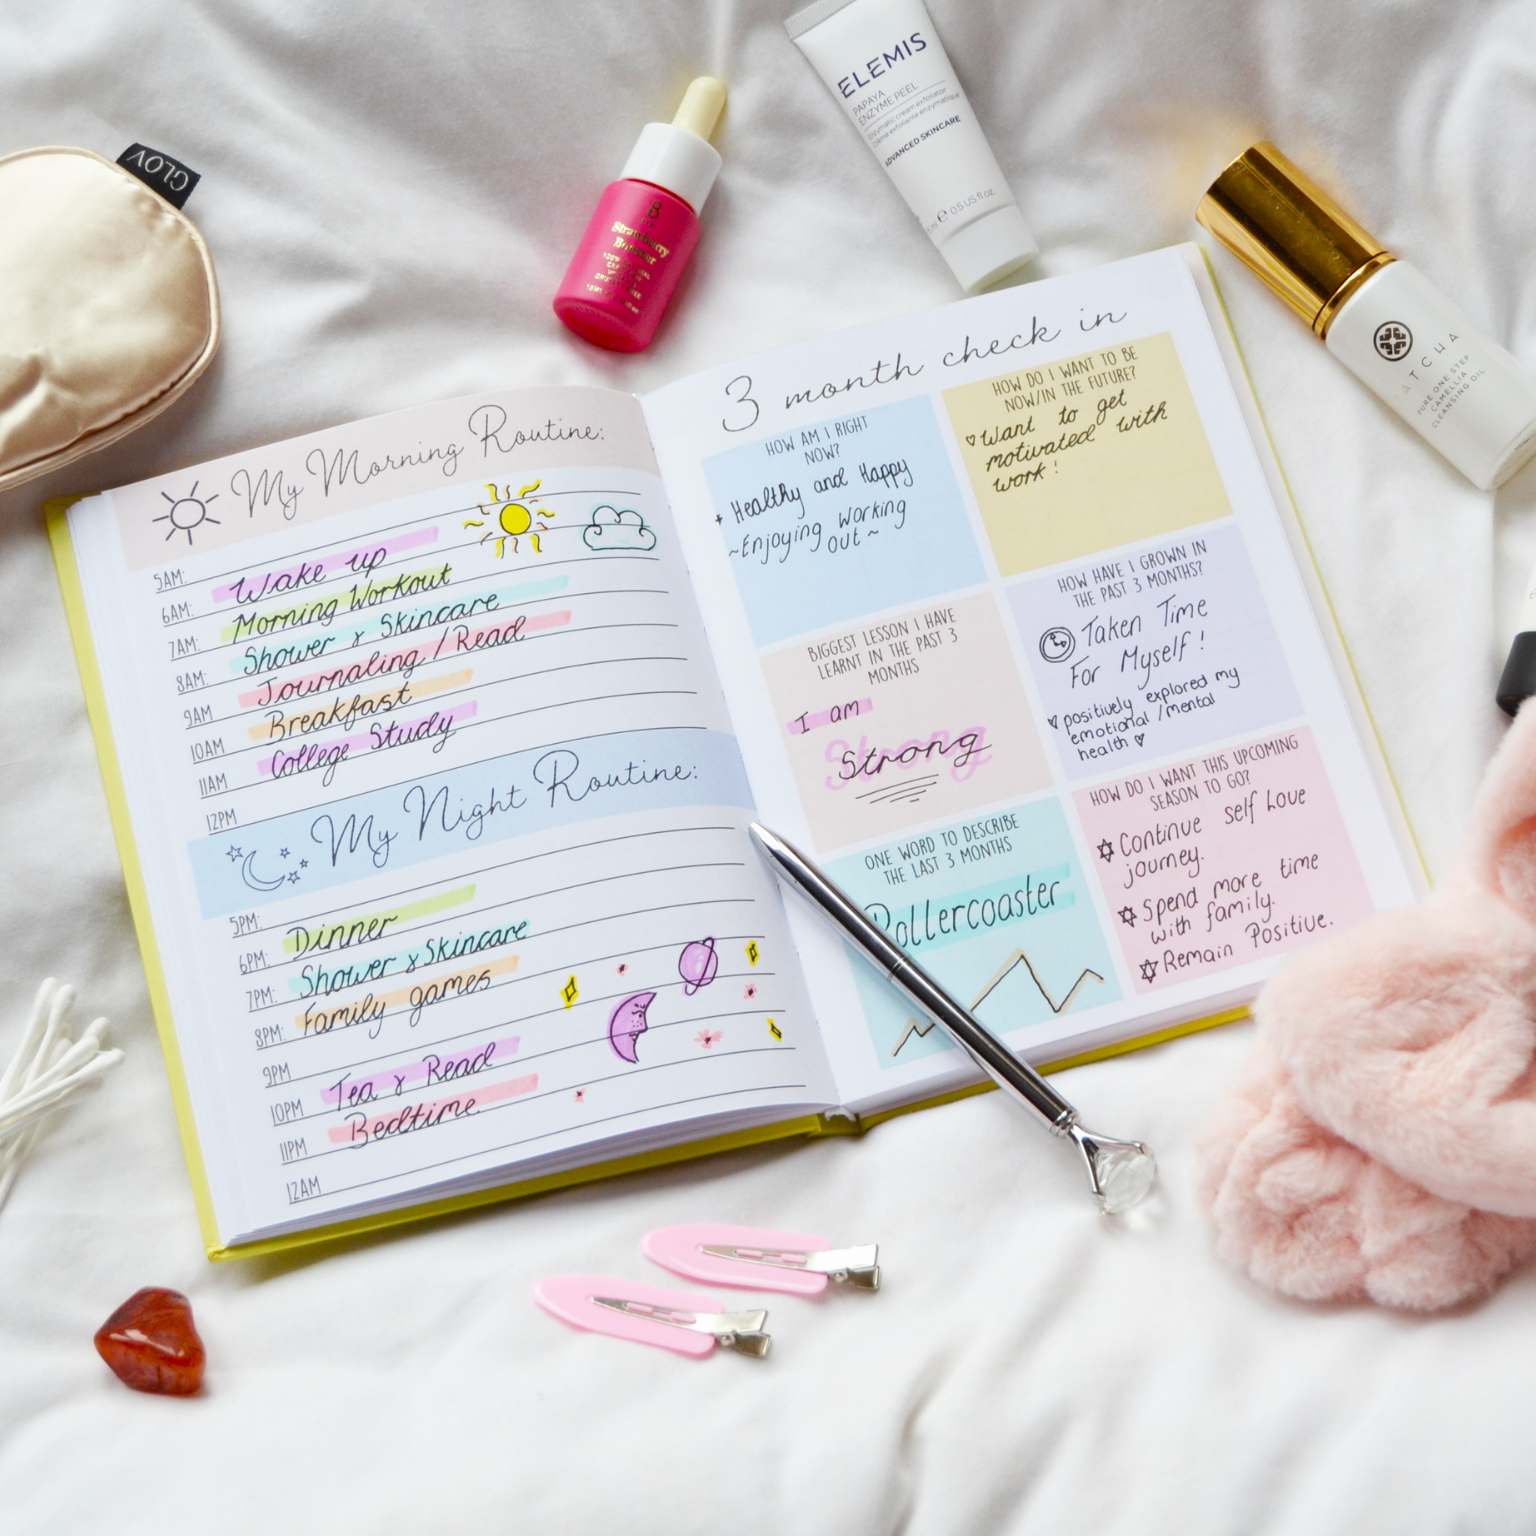 GLOV
B
Strawberry
Booster
ELEMIS
PAPAYA
ENZYME PEEL
Enzymatic cream exfoliator
Crème exfoliante enzymatique
ADVANCED SKINCARE
0.5 US fl.oz.
TCHA
PURE ONE STEP
CAMELLIA
CLEANSING OIL
My Morning Routine:
5AM: Wake up
6AM: Morning Workout
7AM: Shower & Skincare
8AM: Journaling / Read
9AM Breakfast
10AM College Study
11AM
12PM
My Night Routine:
5PM: Dinner
6PM: Shower & Skincare
7PM: Family games
8PM:
9PM Tea & Read
10PM Bedtime
11PM
12AM
3 month check in
HOW AM I RIGHT
NOW?
Healthy and Happy
~Enjoying working
out~
HOW DO I WANT TO BE
NOW/IN THE FUTURE?
♡ Want to get
motivated with
work!
BIGGEST LESSON I HAVE
LEARNT IN THE PAST 3
MONTHS
I am
Strong
HOW HAVE I GROWN IN
THE PAST 3 MONTHS?
Taken Time
For Myself!
♡ positively explored my
emotional / mental
health ♡
ONE WORD TO DESCRIBE
THE LAST 3 MONTHS
Rollercoaster
HOW DO I WANT THIS UPCOMING
SEASON TO GO?
✡ Continue self love
journey.
✡ Spend more time
with family.
✡ Remain Positive.